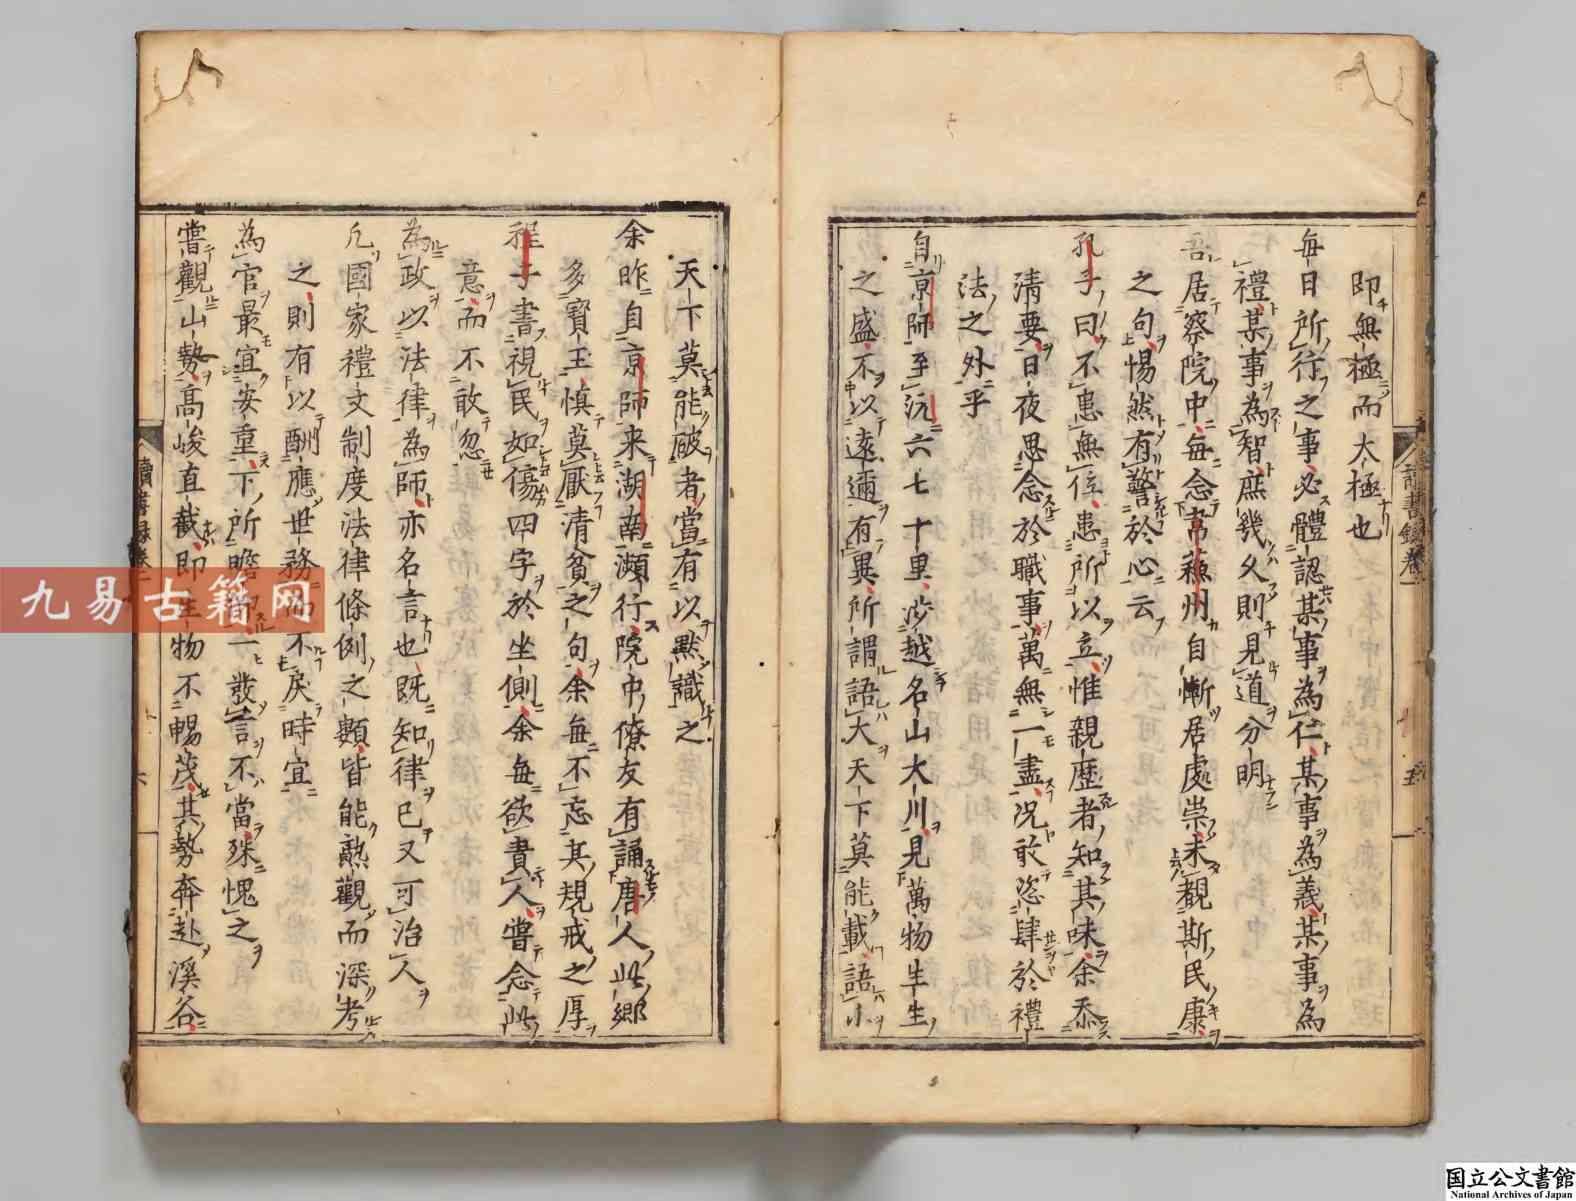 即無極而太極也
每日所行之事必體認某事為仁某事為義某事為
禮某事為智庶幾久則見道分明
吾居察院中每念韋蘇州自慚居處崇未覩斯民康
之句惕然有警於心云
孔子曰不患無位患所以立惟親歷者知其味余忝
清要日夜思念於職事萬無一盡況敢恣肆於禮
法之外乎
自京師至沅六七十里沙越名山大川見萬物生生
之盛不以遠邇有異所謂語大天下莫能載語小
讀書錄卷一
五
天下莫能破者當有以默識之
余昨自京師来湖南瀕行院中僚友有誦唐人此鄉
多寶玉慎莫厭清貧之句余每不忘其規戒之厚
程子書視民如傷四字於坐側余每欲責人嘗念此
意而不敢忽
為政以法律為師亦名言也既知律已又可治人
凡國家禮文制度法律條例之類皆能熟觀而深考
之則有以酬應世務而不戾時宜
為官最宜安重下所瞻仰一發言不當殊愧之
嘗觀山勢高峻直截即生物不暢茂其勢奔赴溪谷
讀書錄卷一
六
九易古籍网
国立公文書館
National Archives of Japan